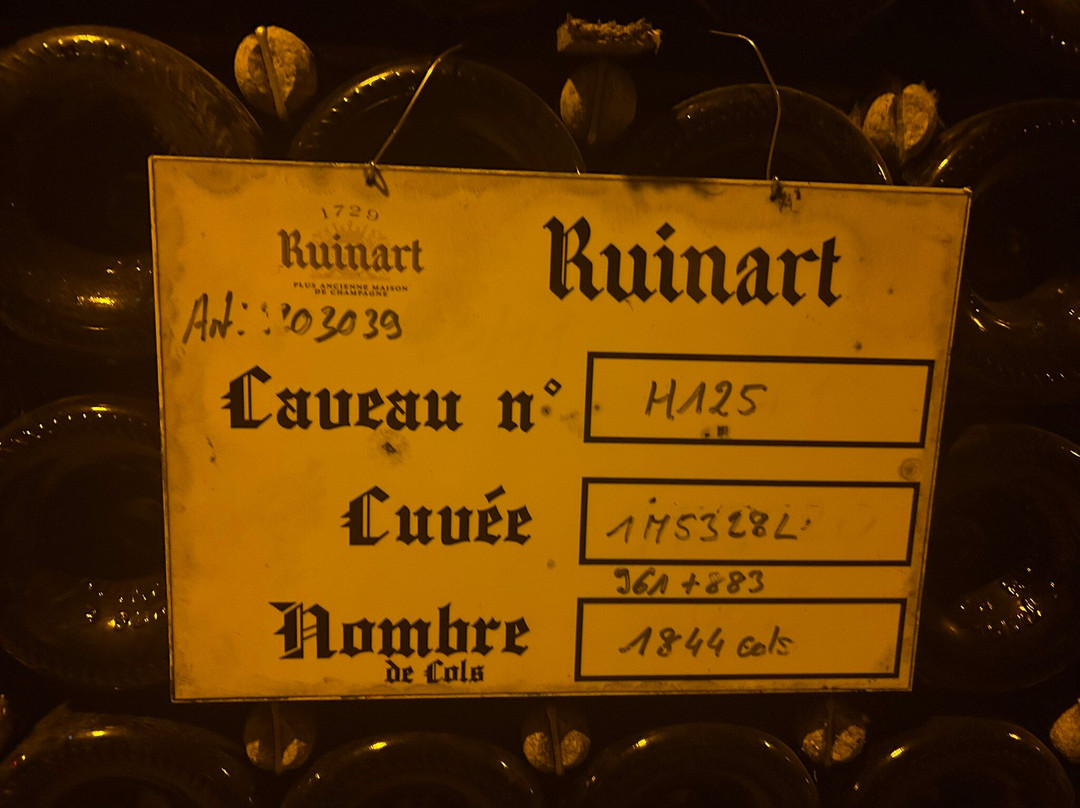 1729
Ruinart
PLUS ANCIENNE MAISON
DE CHAMPAGNE
Ruinart
Art: 03039
Caveau n° H125
Cuvée 1M5328L
961 + 883
Nombre 1844 cols
de Cols